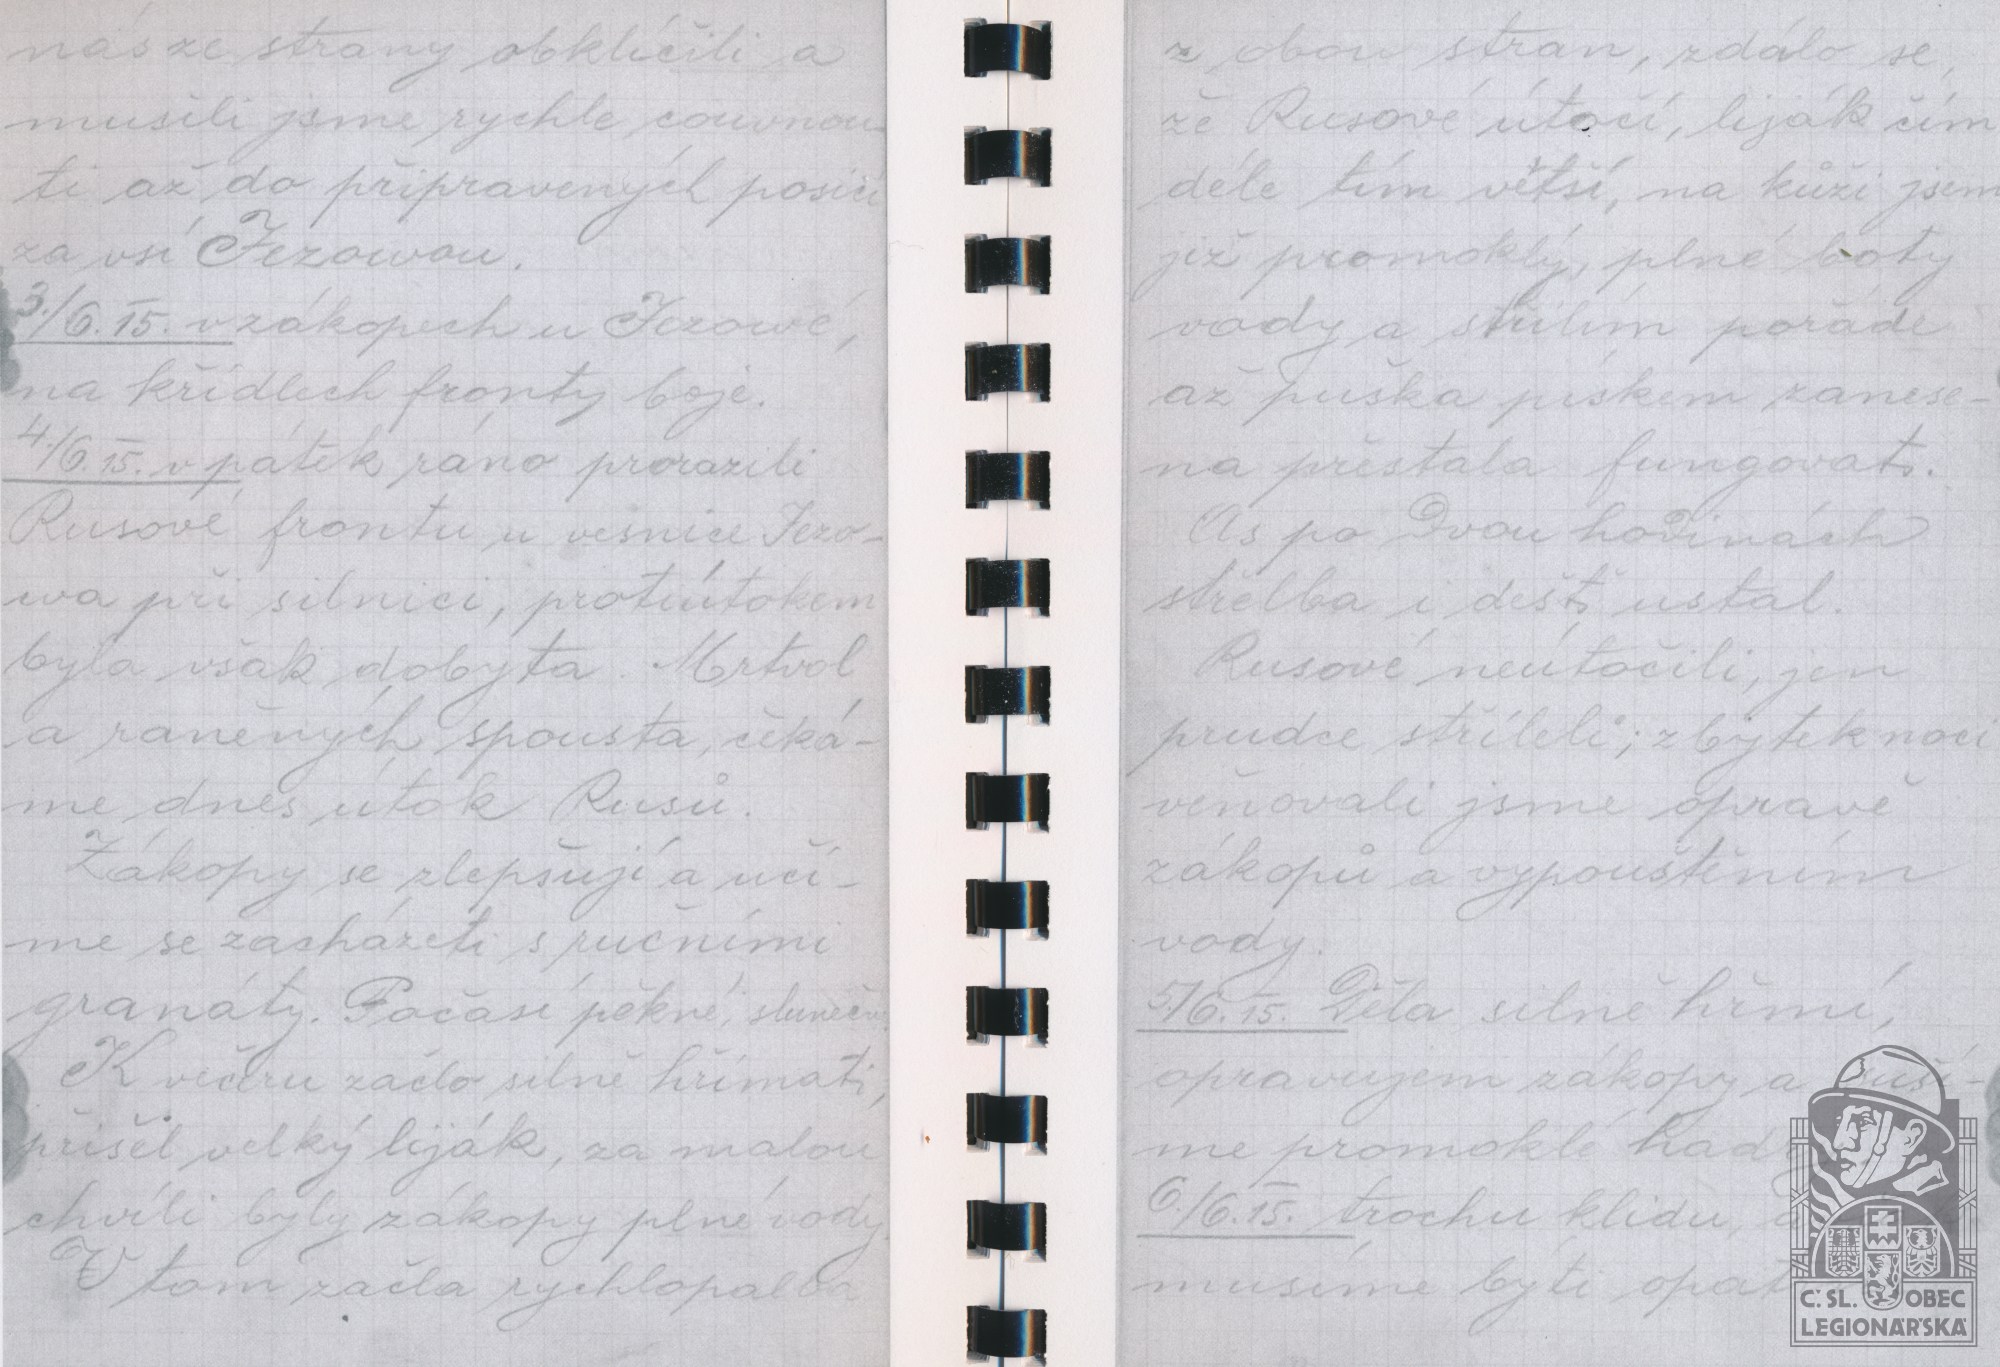 nás ze strany obklíčili a
musili jsme rychle couvnou
ti až do připravených posicí
za vsí Jezowou.
3./6.15. v zákopech u Jezowé,
na křídlech fronty boje.
4./6.15. v pátek ráno prorazili
Rusové frontu u vesnice Jezo-
wa při silnici, protiútokem
byla však dobyta. Mrtvol
a raněných spousta, čeká-
me dnes útok Rusů.
Zákopy se zlepšují a učí-
me se zacházeti s ručními
granáty. Počasí pěkné, slunečn.
K večeru začlo silně hřímati,
přišel velký liják, za malou
chvíli byly zákopy plné vody.
V tom začla rychlopalba
z obou stran, zdálo se,
že Rusové útočí, liják čím
déle tím větší, na kůži jsem
již promoklý, plné boty
vody a střílím pořáde
až puška pískem zanese-
na přestala fungovat.
As po dvou hodinách
střelba i déšť ustal.
Rusové neútočili, jen
prudce stříleli; zbytek noci
věnovali jsme opravě
zákopů a vypouštěním
vody.
5/6.15. Děla silně hřmí,
opravujem zákopy a suší-
me promoklé hadry
6./6.15. trochu klidu,
musíme býti opat
Č.SL. OBEC
LEGIONÁŘSKÁ